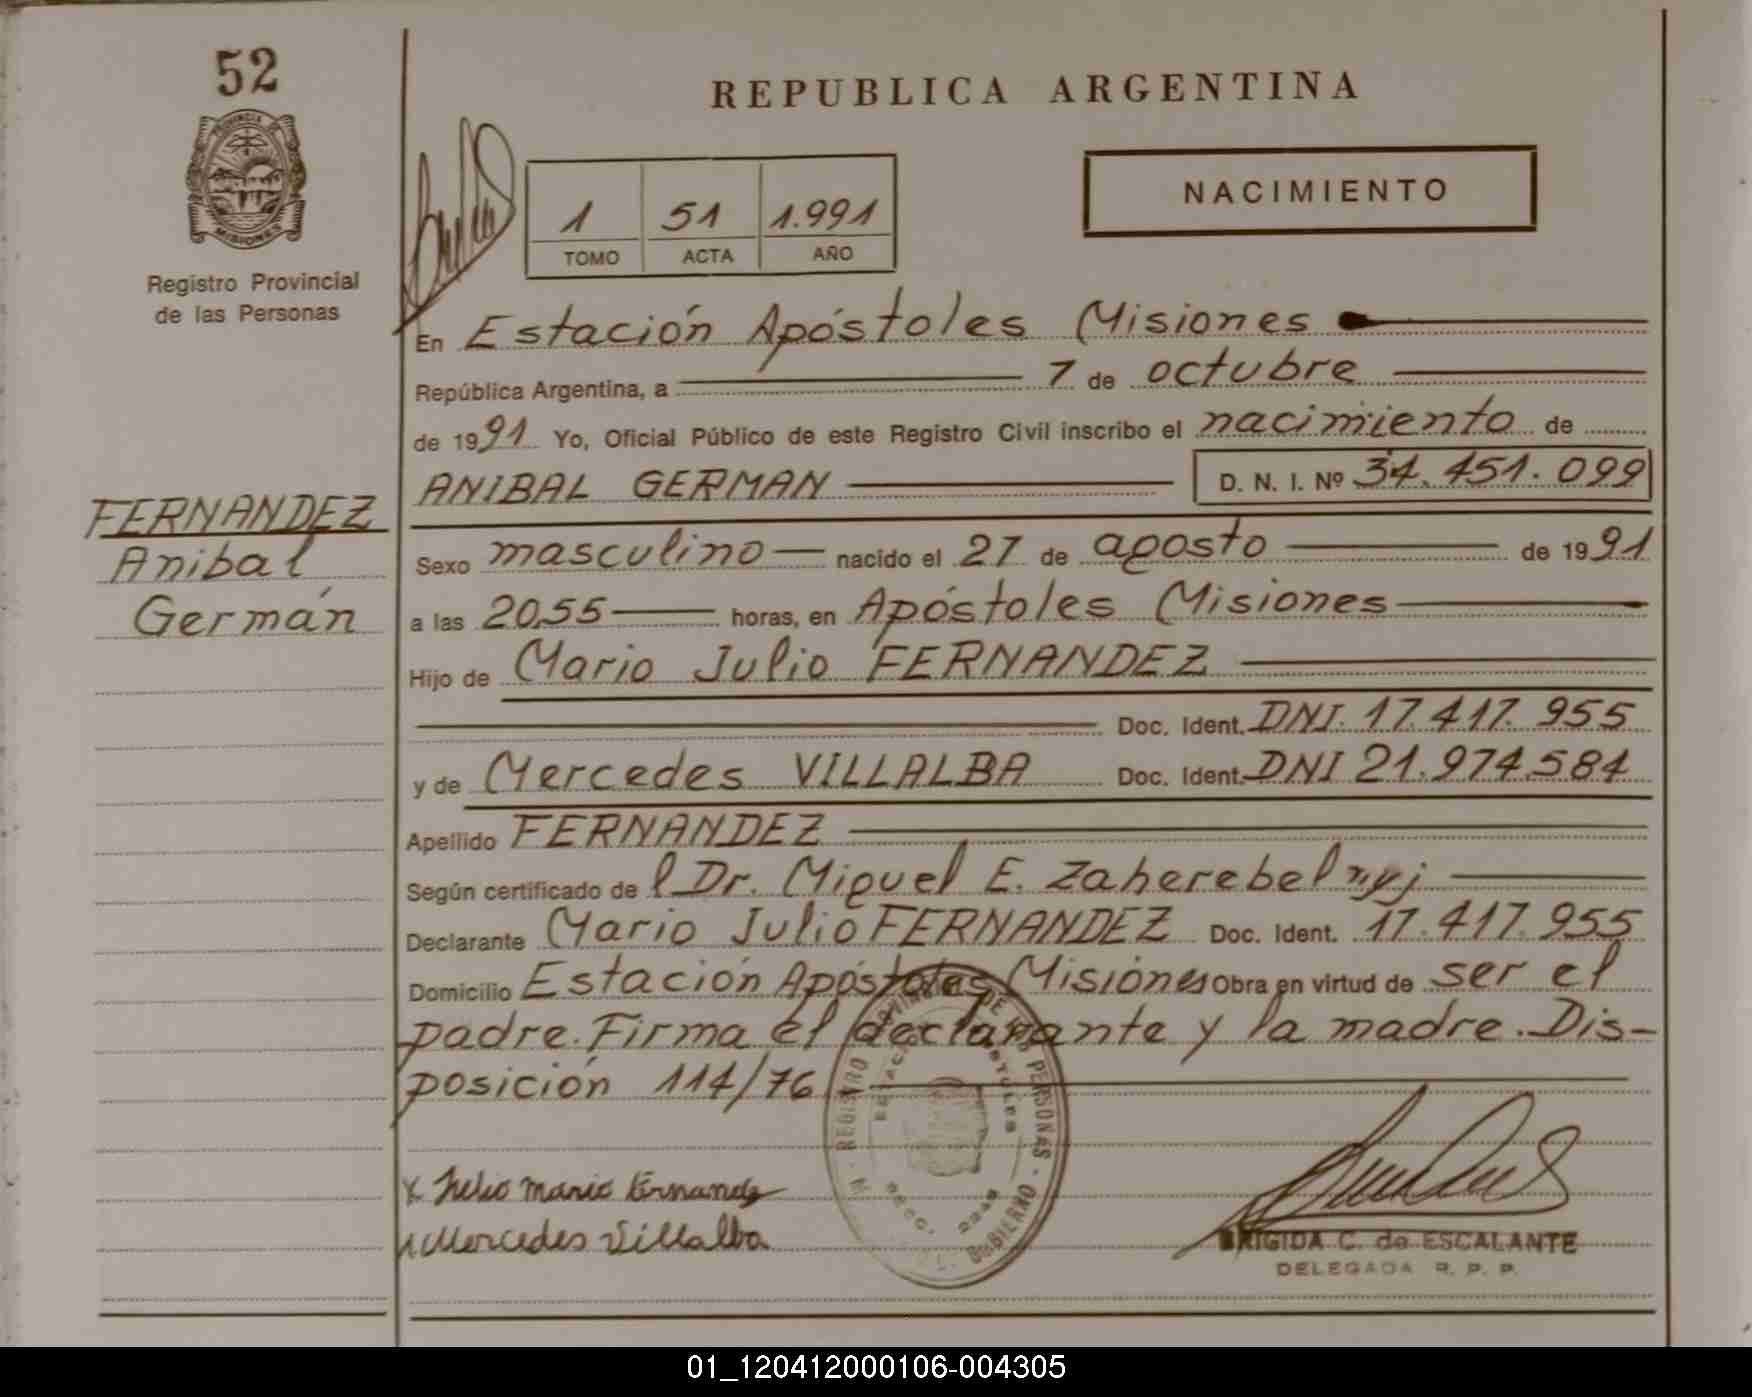 52
PROVINCIA DE
MISIONES
Registro Provincial
de las Personas
FERNANDEZ
Anibal
Germán
REPUBLICA ARGENTINA
1 51 1.991
TOMO ACTA AÑO
NACIMIENTO
En Estación Apóstoles Misiones
República Argentina, a 7 de octubre
de 1991 Yo, Oficial Público de este Registro Civil inscribo el nacimiento de
ANIBAL GERMAN D. N. I. Nº 34.451.099
Sexo masculino nacido el 27 de agosto de 1991
a las 20,55 horas, en Apóstoles Misiones
Hijo de Mario Julio FERNANDEZ
Doc. Ident. DNI. 17.417.955
y de Mercedes VILLALBA Doc. Ident. DNI 21.974.584
Apellido FERNANDEZ
Según certificado de l Dr. Miguel E. Zaherebelnyj
Declarante Mario Julio FERNANDEZ Doc. Ident. 17.417.955
Domicilio Estación Apóstoles Misiones Obra en virtud de ser el
padre. Firma el declarante y la madre. Dis-
posición 114/76
REGISTRO PROVINCIAL DE LAS PERSONAS
GOBIERNO
Julio Mario Fernandez
Mercedes Villalba
BRIGIDA C. de ESCALANTE
DELEGADA R. P. P.
01_120412000106-004305